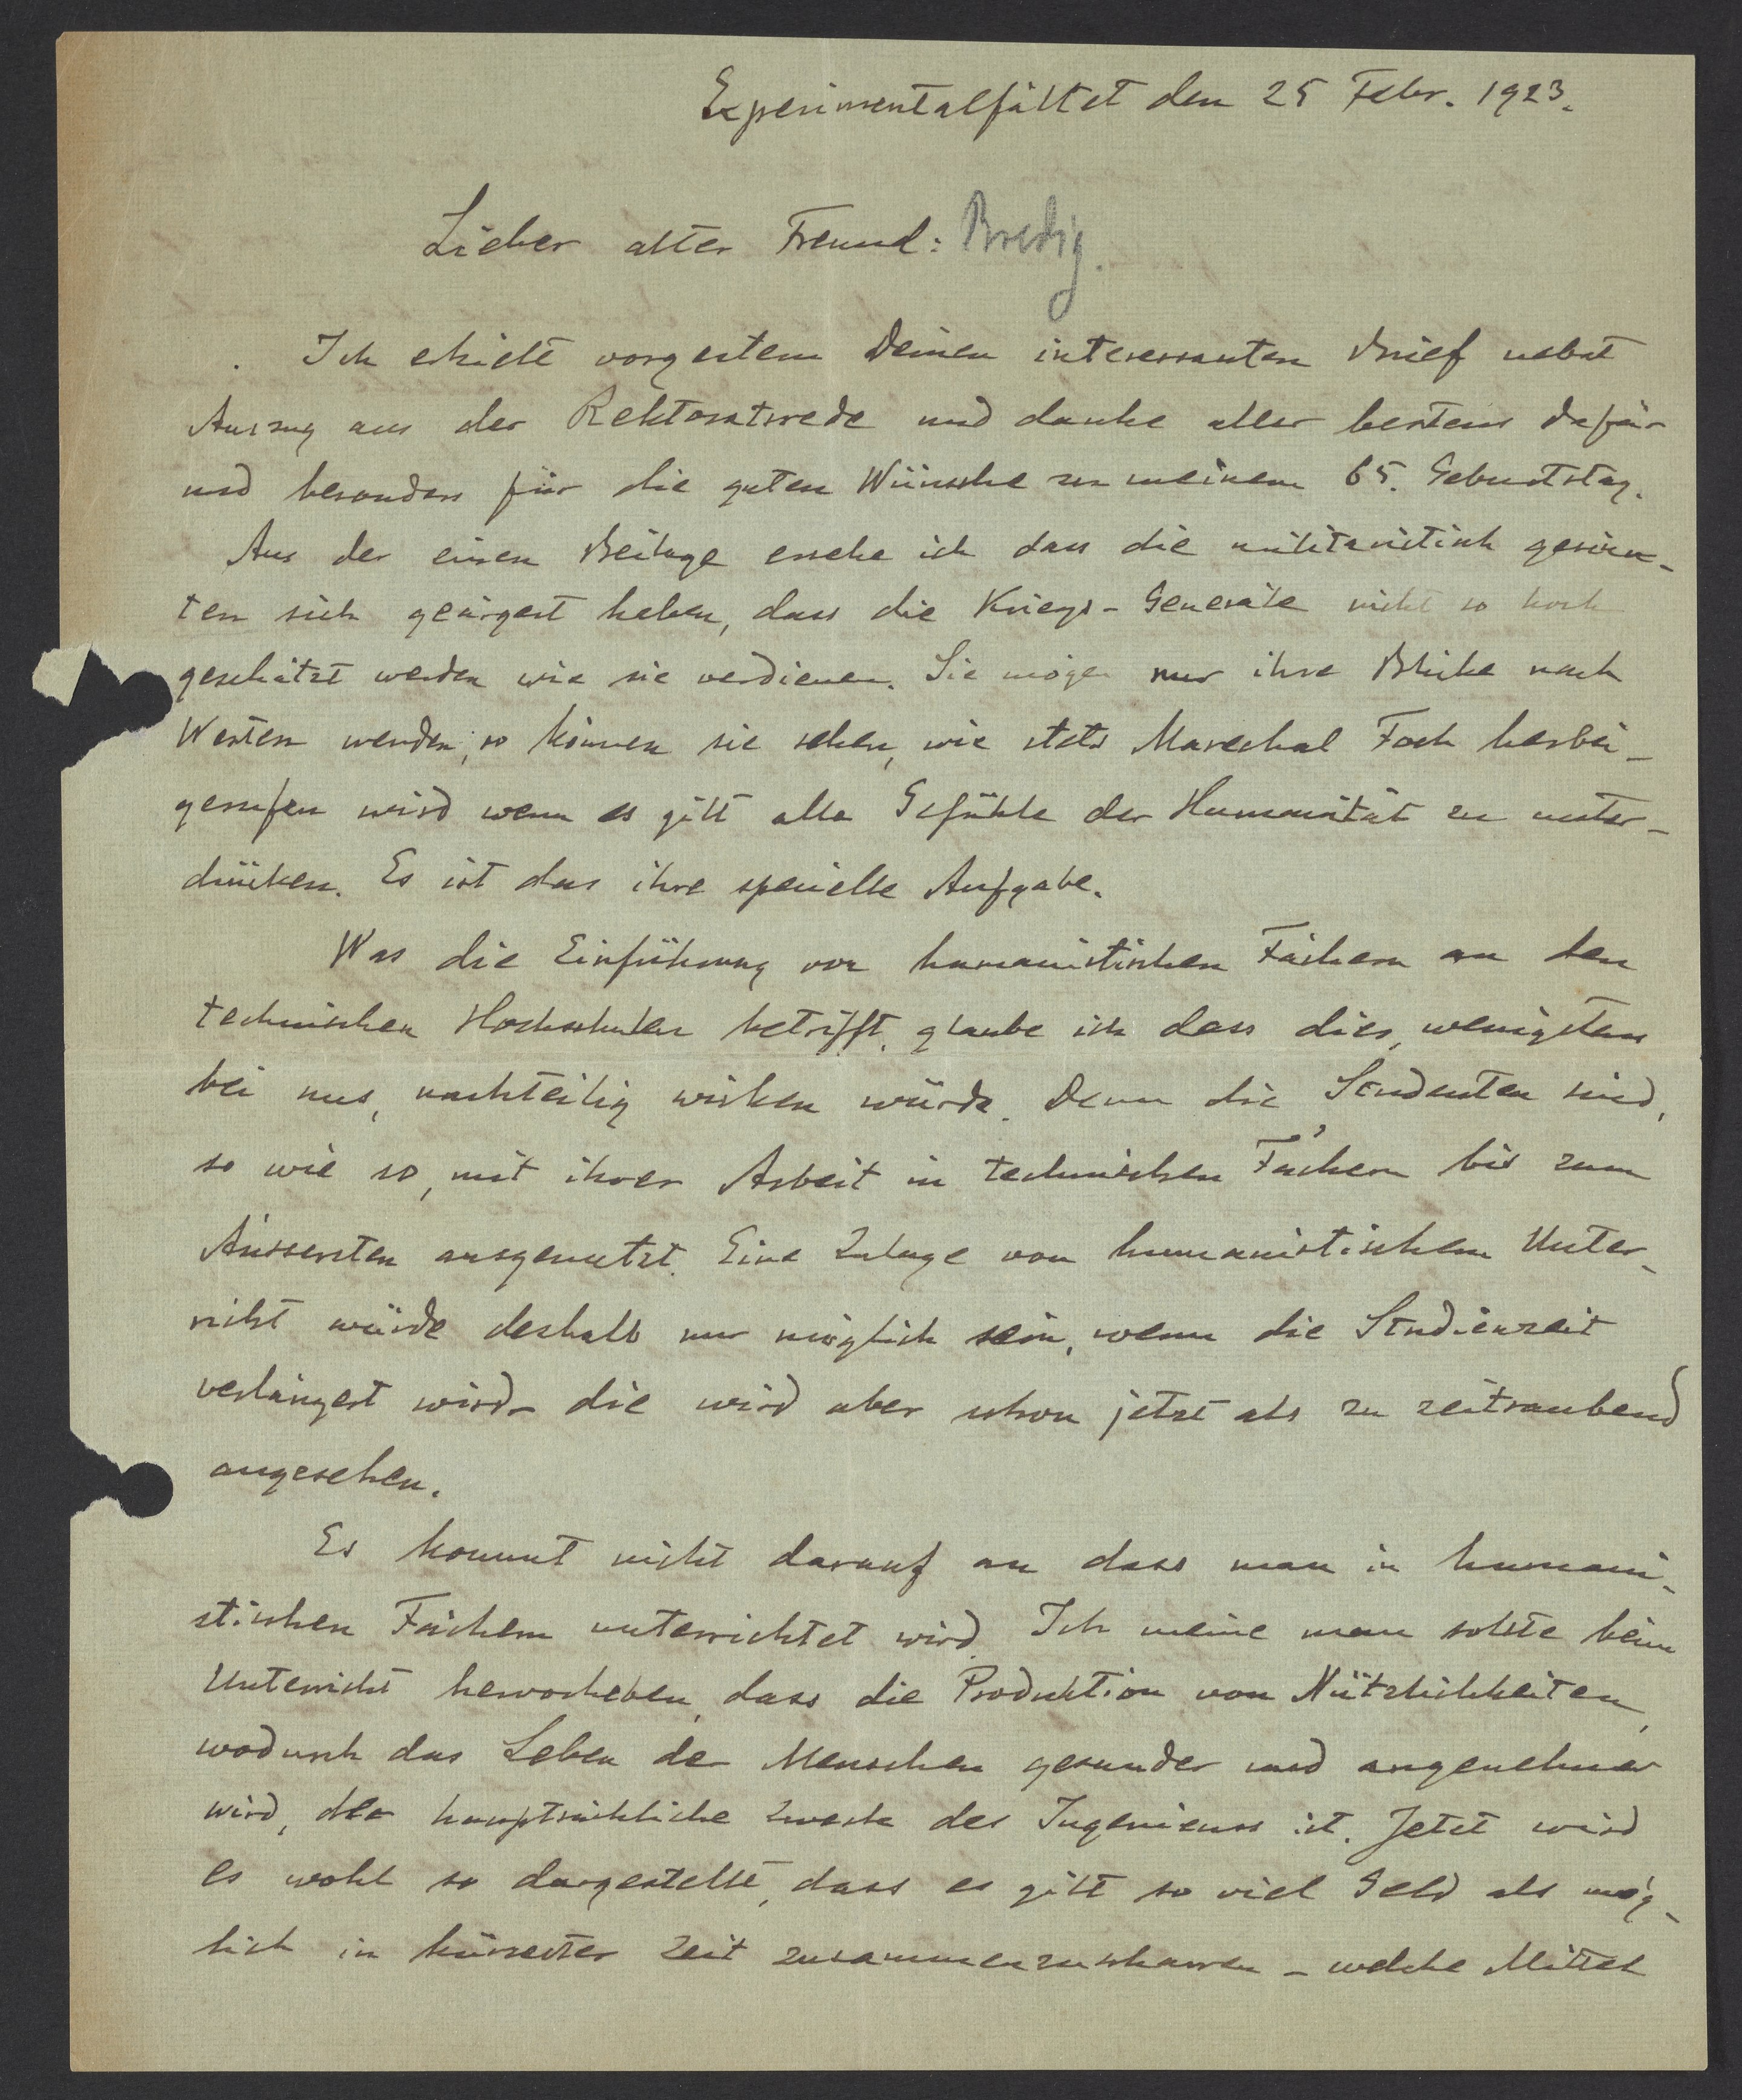 Experimentalfältet den 25 Febr. 1923.
Lieber alter Freund: Bredig.
Ich erhielt vorgestern Deinen interessanten Brief nebst
Auszug aus der Rektoratsrede und danke aller bestens dafür
und besonders für die guten Wünsche zu meinem 65. Geburtstag.
Aus der einen Beilage ersehe ich dass die militaristisch gesinn-
ten sich geärgert haben, dass die Kriegs-Generäle nicht so hoch
geschätzt werden wie sie verdienen. Sie mögen nur ihre Blicke nach
Westen wenden, so können sie sehen, wie stets Marechal Foch herbei-
gerufen wird wenn es gilt alle Gefühle der Humanität zu unter-
drücken. Es ist das ihre specielle Aufgabe.
Was die Einführung von humanistischen Fächern an den
technischen Hochschulen betrifft, glaube ich dass dies, wenigstens
bei uns, nachteilig wirken würde. Denn die Studenten sind,
so wie so, mit ihrer Arbeit in technischen Fächern bis zum
Äussersten ausgenutzt. Eine Zulage von humanistischem Unter-
richt würde deshalb nur möglich sein, wenn die Studienzeit
verlängert wird – die wird aber schon jetzt als zu zeitraubend
angesehen.
Es kommt nicht darauf an dass man in humani-
stischen Fächern unterrichtet wird. Ich meine man sollte beim
Unterricht hervorheben, dass die Produktion von Nützlichkeiten,
wodurch das Leben der Menschen gesunder und angenehmer
wird, der hauptsächliche Zweck des Ingenieurs ist. Jetzt wird
es wohl so dargestellt, dass es gilt so viel Geld als mög-
lich in kürzester Zeit zusammenzuscharren – welche Mittel